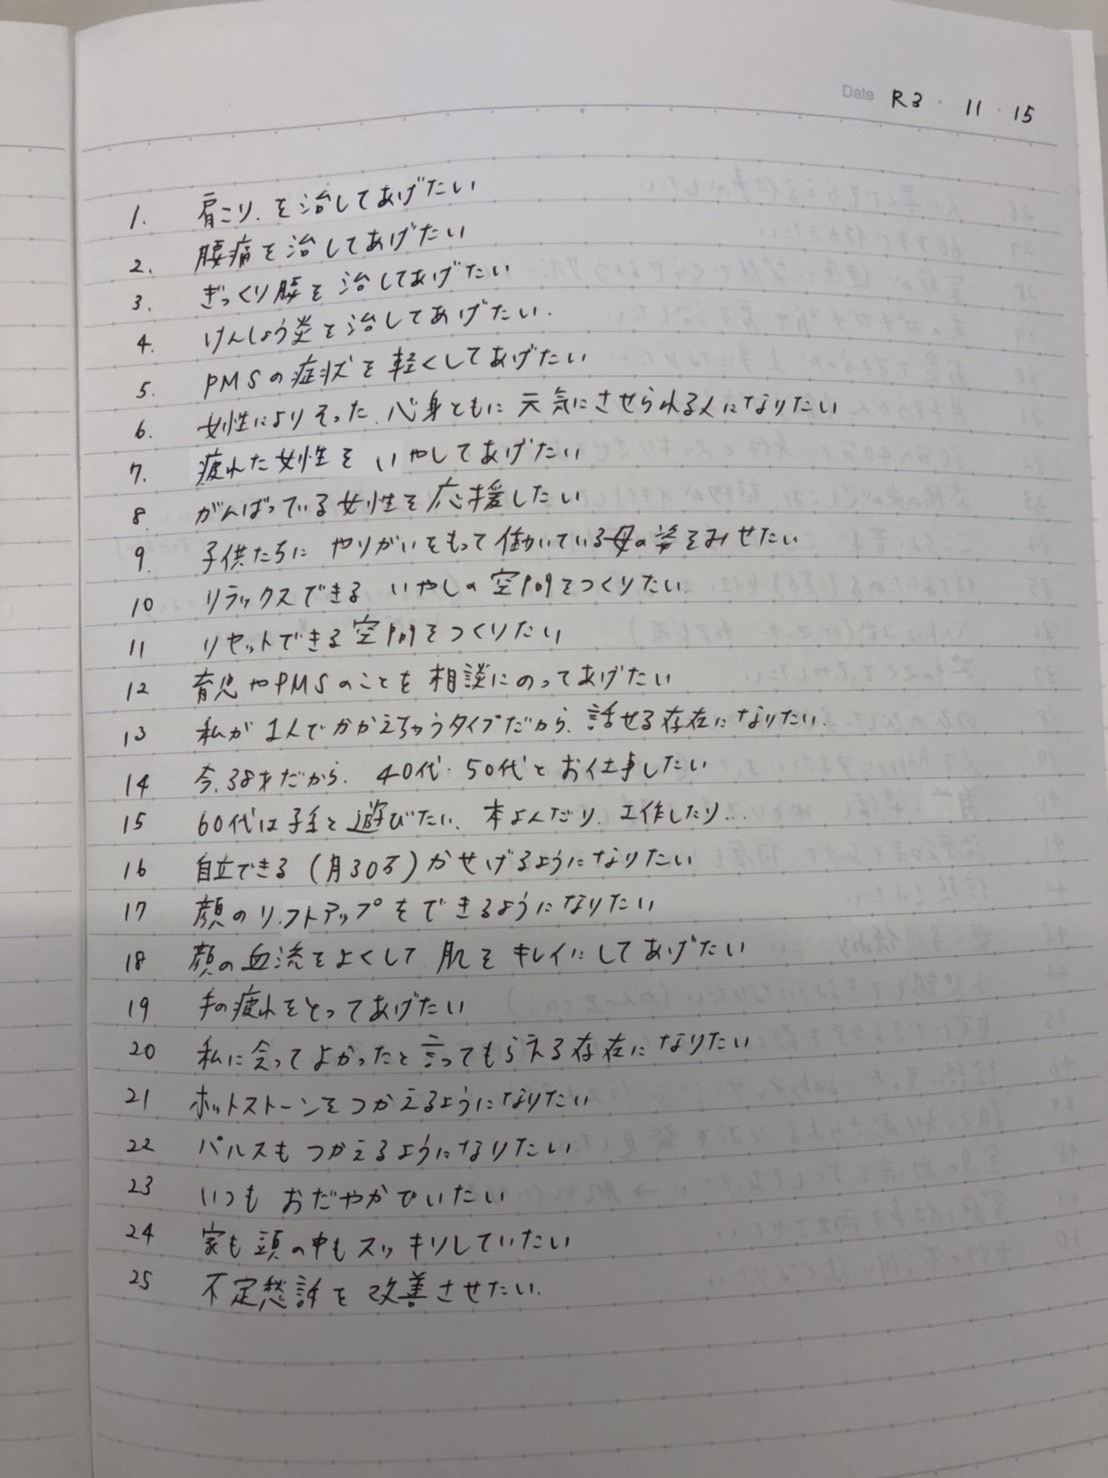 Date R3・11・15
1. 肩こり、を治してあげたい
2. 腰痛を治してあげたい
3. ぎっくり腰を治してあげたい
4. けんしょう炎を治してあげたい.
5. PMSの症状を軽くしてあげたい
6. 女性によりそった、心身ともに元気にさせられる人になりたい
7. 疲れた女性をいやしてあげたい
8. がんばっている女性を応援したい
9. 子供たちにやりがいをもって働いている母の姿をみせたい
10 リラックスできるいやしの空間をつくりたい
11 リセットできる空間をつくりたい
12 育児やPMSのことを相談にのってあげたい
13 私が1人でかかえちゃうタイプだから、話せる存在になりたい.
14 今、38才だから、40代・50代とお仕事したい
15 60代は子と遊びたい、本よんだり、工作したり…
16 自立できる(月30万)かせげるようになりたい
17 顔のリフトアップをできるようになりたい
18 顔の血流をよくして肌をキレイにしてあげたい
19 手の疲れをとってあげたい
20 私に会ってよかったと言ってもらえる存在になりたい
21 ホットストーンをつかえるようになりたい
22 パルスもつかえるようになりたい
23 いつもおだやかでいたい
24 家も頭の中もスッキリしていたい
25 不定愁訴を改善させたい.